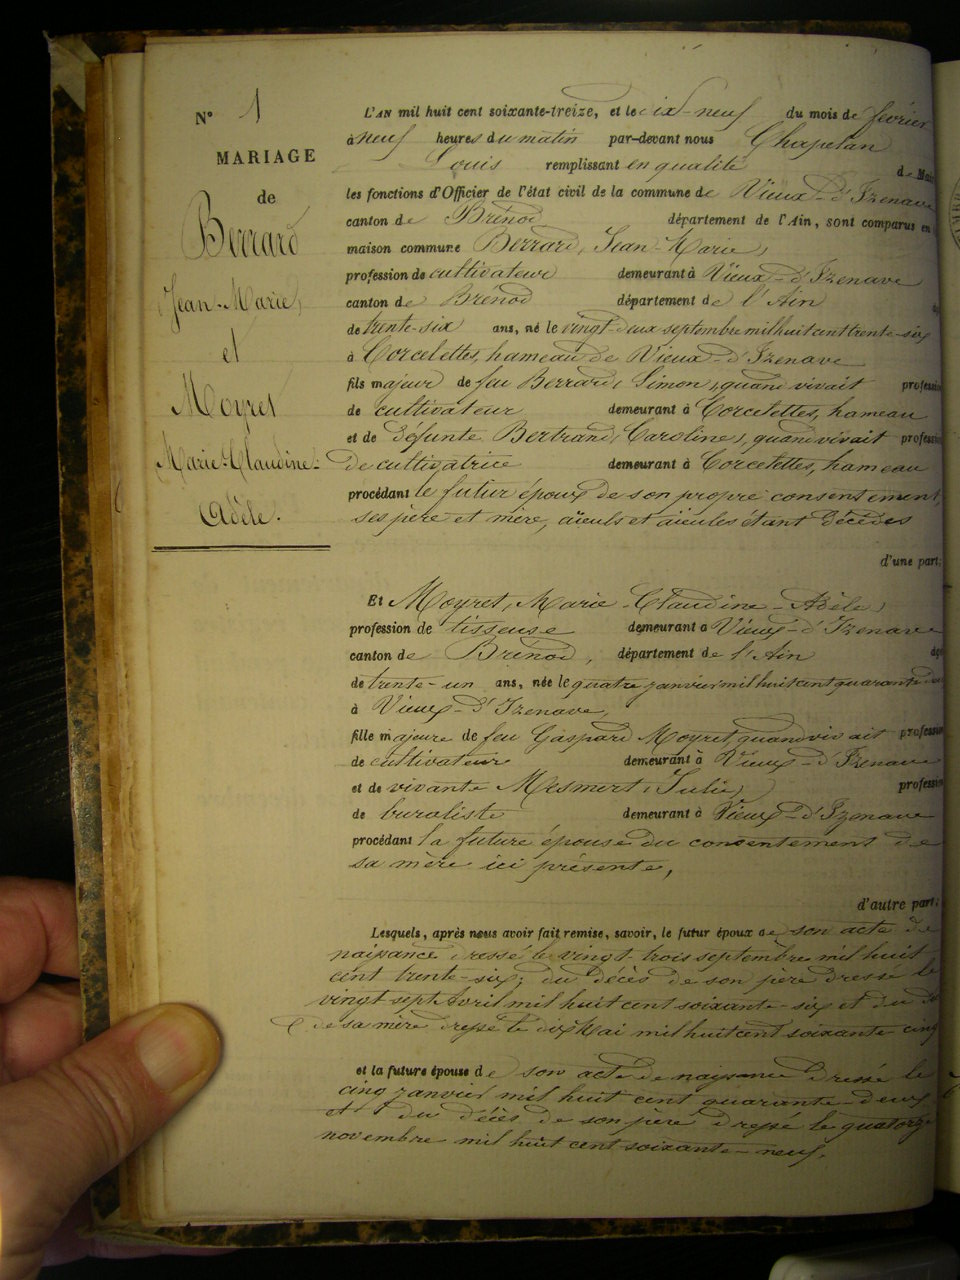 N° 1
MARIAGE
de
Berrard
Jean-Marie,
et
Moyret
Marie-Claudine-
Adèle.
L'AN mil huit cent soixante-treize, et le dix-neuf du mois de février
à neuf heures du matin par-devant nous Chapelan
Louis remplissant en qualité de Maire
les fonctions d'Officier de l'état civil de la commune de Vieux-d'Izenave
canton de Brénod département de l'Ain, sont comparus en
maison commune Berrard, Jean-Marie,
profession de cultivateur demeurant à Vieux-d'Izenave
canton de Brénod département de l'Ain
de trente-six ans, né le vingt-deux septembre mil huit cent trente-six
à Corcelettes, hameau de Vieux-d'Izenave
fils majeur de feu Berrard, Simon, quand vivait profession
de cultivateur demeurant à Corcelettes, hameau
et de défunte Bertrand, Caroline, quand vivait profession
de cultivatrice demeurant à Corcelettes, hameau
procédant le futur époux de son propre consentement,
ses père et mère, aïeuls et aïeules étant décédés
d'une part;
Et Moyret, Marie-Claudine-Adèle,
profession de tisseuse demeurant à Vieux-d'Izenave
canton de Brénod, département de l'Ain
de trente-un ans, née le quatre janvier mil huit cent quarante-deux
à Vieux-d'Izenave,
fille majeure de feu Gaspard Moyret, quand vivait profession
de cultivateur demeurant à Vieux-d'Izenave
et de vivante Mesmert, Julie, profession
de buraliste demeurant à Vieux-d'Izenave
procédant la future épouse du consentement de
sa mère ici présente,
d'autre part;
Lesquels, après nous avoir fait remise, savoir, le futur époux de son acte de
naissance dressé le vingt-trois septembre mil huit
cent trente-six; du décès de son père dressé le
vingt-sept Avril mil huit cent soixante-six et du
de sa mère dressé le dix Mai mil huit cent soixante-cinq
et la future épouse de son acte de naissance dressé le
cinq janvier mil huit cent quarante-deux
et du décès de son père dressé le quatorze
novembre mil huit cent soixante-neuf.